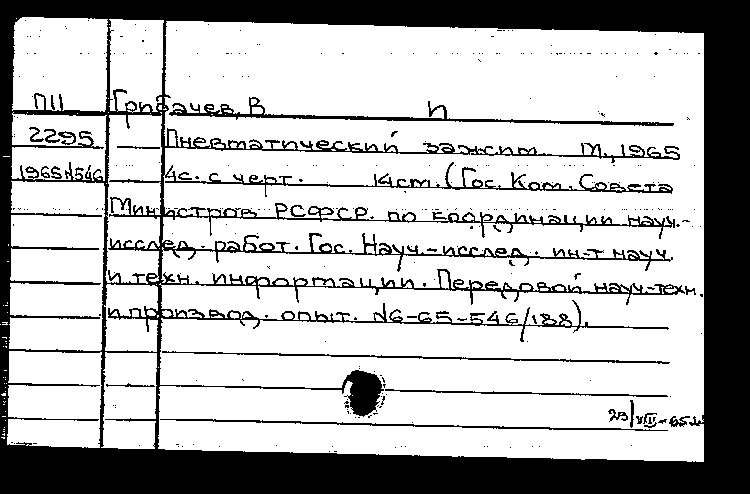 П11 Грибачев, В П
2295 Пневматический зажим М., 1965
1965 №546 4с. с черт. 14cm. (Гос. Ком. Совета
Министров РСФСР. по координации науч.-
исслед. работ. Гос. Науч.-исслед. ин-т науч.
и техн. информации. Передовой науч-техн.
и производ. опыт. №6-65-546/188).
23/VIII-65г